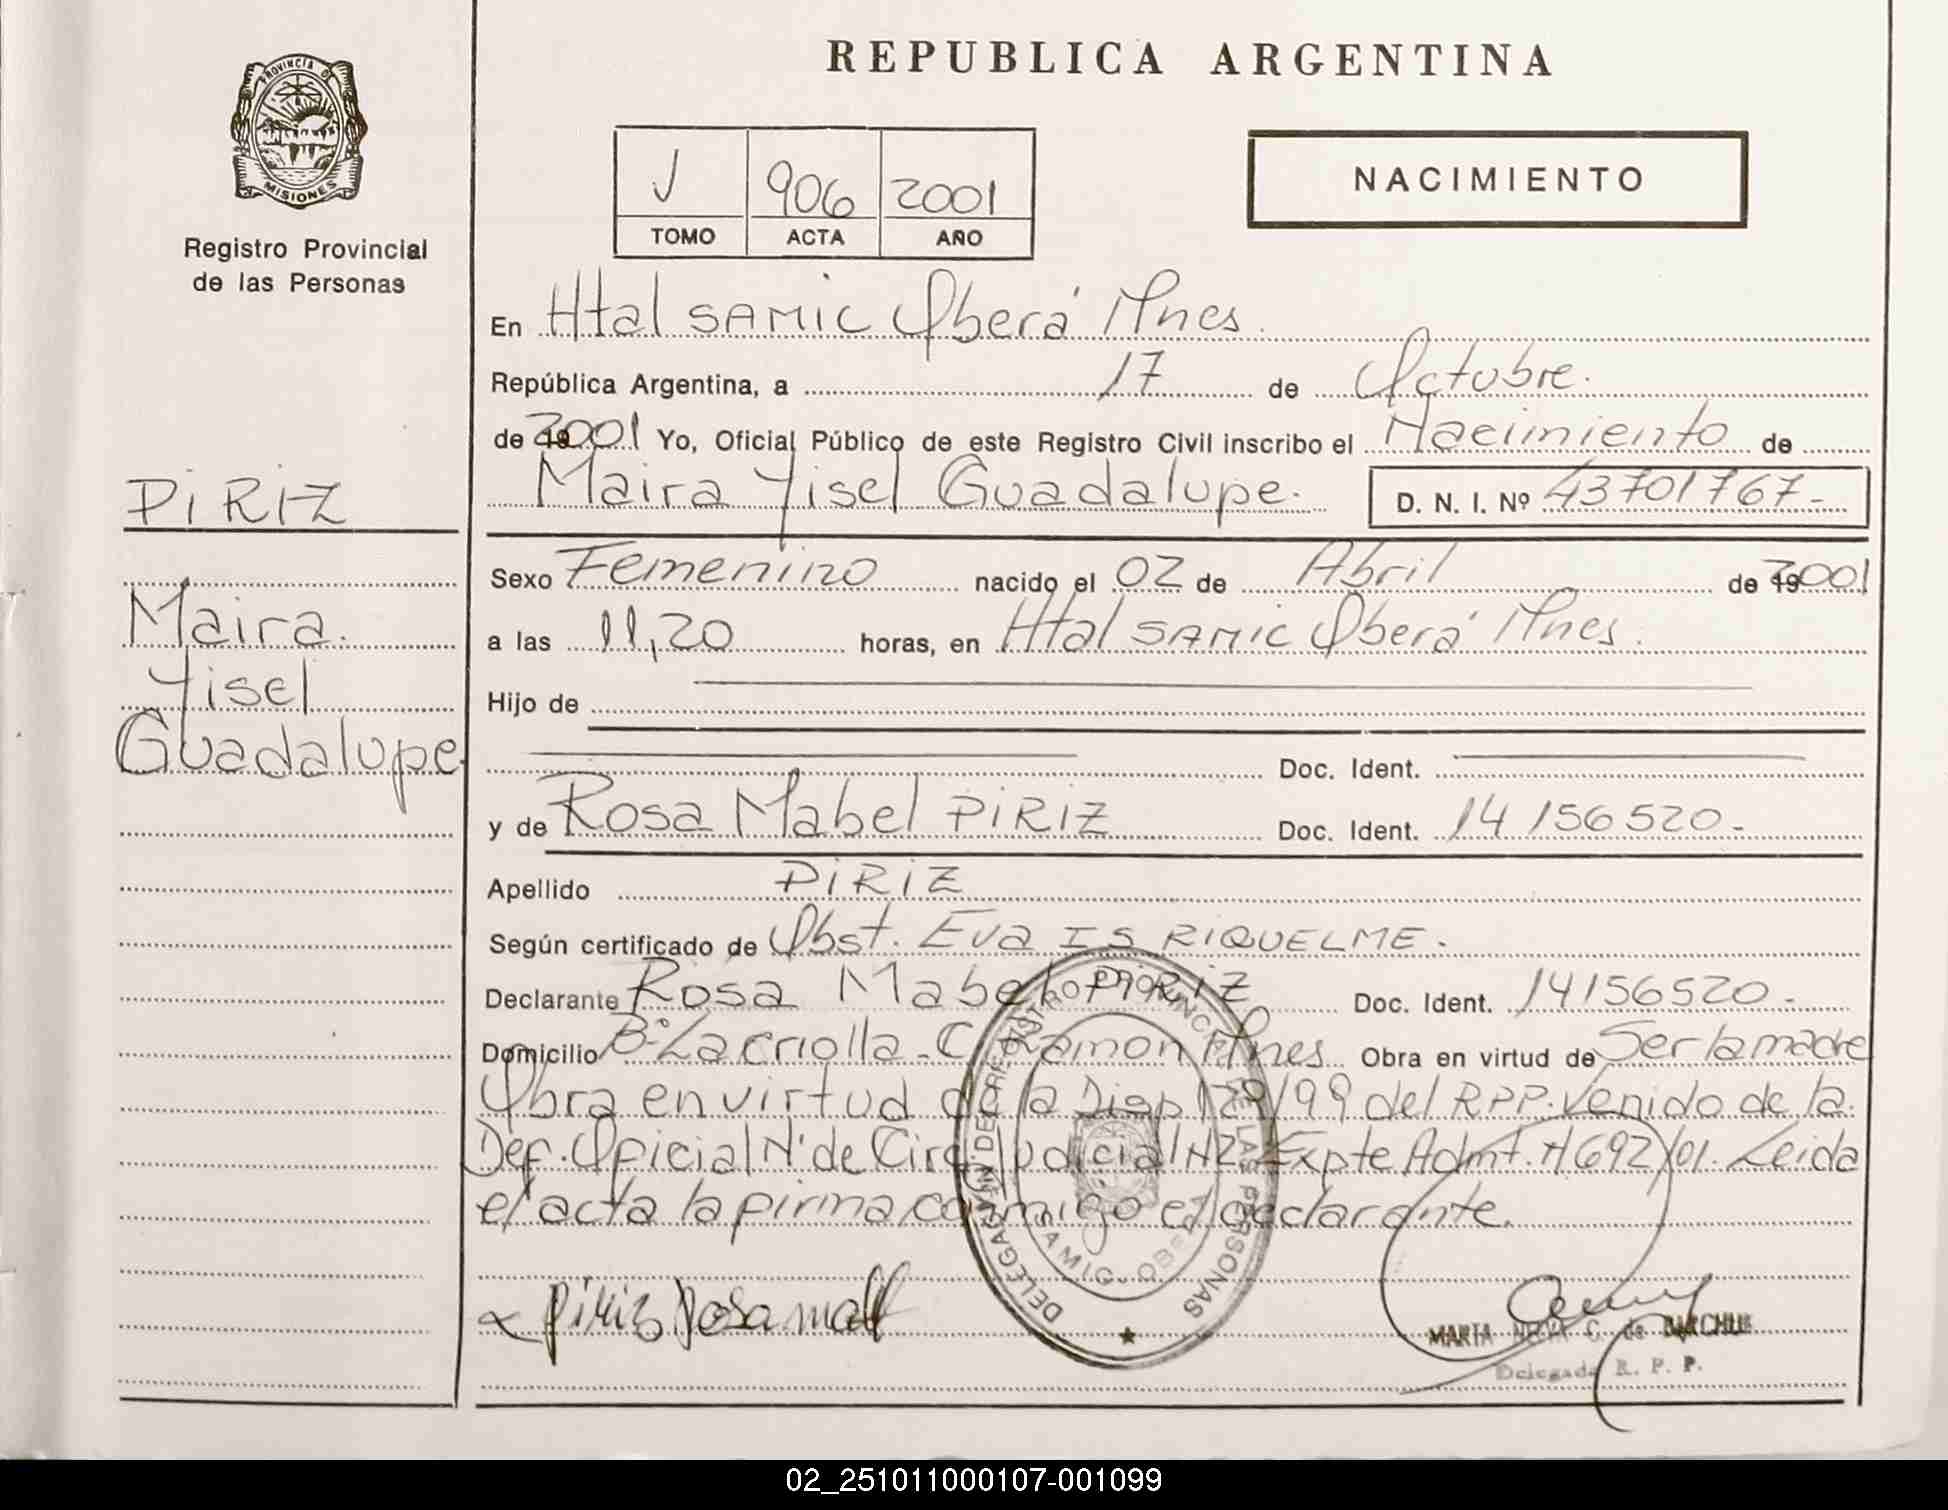 REPUBLICA ARGENTINA
PROVINCIA DE
MISIONES
Registro Provincial
de las Personas
J 906 2001
TOMO ACTA AÑO
NACIMIENTO
En Htal SAMIC Oberá Mnes.
República Argentina, a 17 de Octubre.
de 2001 Yo, Oficial Público de este Registro Civil inscribo el Nacimiento de
Maira Yisel Guadalupe. D. N. I. Nº 43701767-
PiRiZ
Maira.
Yisel
Guadalupe
Sexo Femenino nacido el 02 de Abril de 2001
a las 11,20 horas, en Htal SAMIC Oberá Mnes.
Hijo de
Doc. Ident.
y de Rosa Mabel PiRiZ Doc. Ident. 14156520-
Apellido PiRiZ
Según certificado de Obst. Eva IS RIQUELME.
Declarante Rosa Mabel PiRiZ Doc. Ident. 14156520-
Domicilio Bº La criolla - C. Ramon Mnes Obra en virtud de Ser la madre
Obra en virtud de la Disp 179/99 del RPP. Venido de la
Def. Oficial Nº de Circ Judicial N2 Expte Admt. N 692/01. Leida
el acta la firma conmigo el declarante.
Piriz Rosa mabel
DELEGACION DEL REGISTRO PROVINCIAL DE LAS PERSONAS
SAMIC - OBERA
MARTA C. de
Delegada R. P. P.
02_251011000107-001099